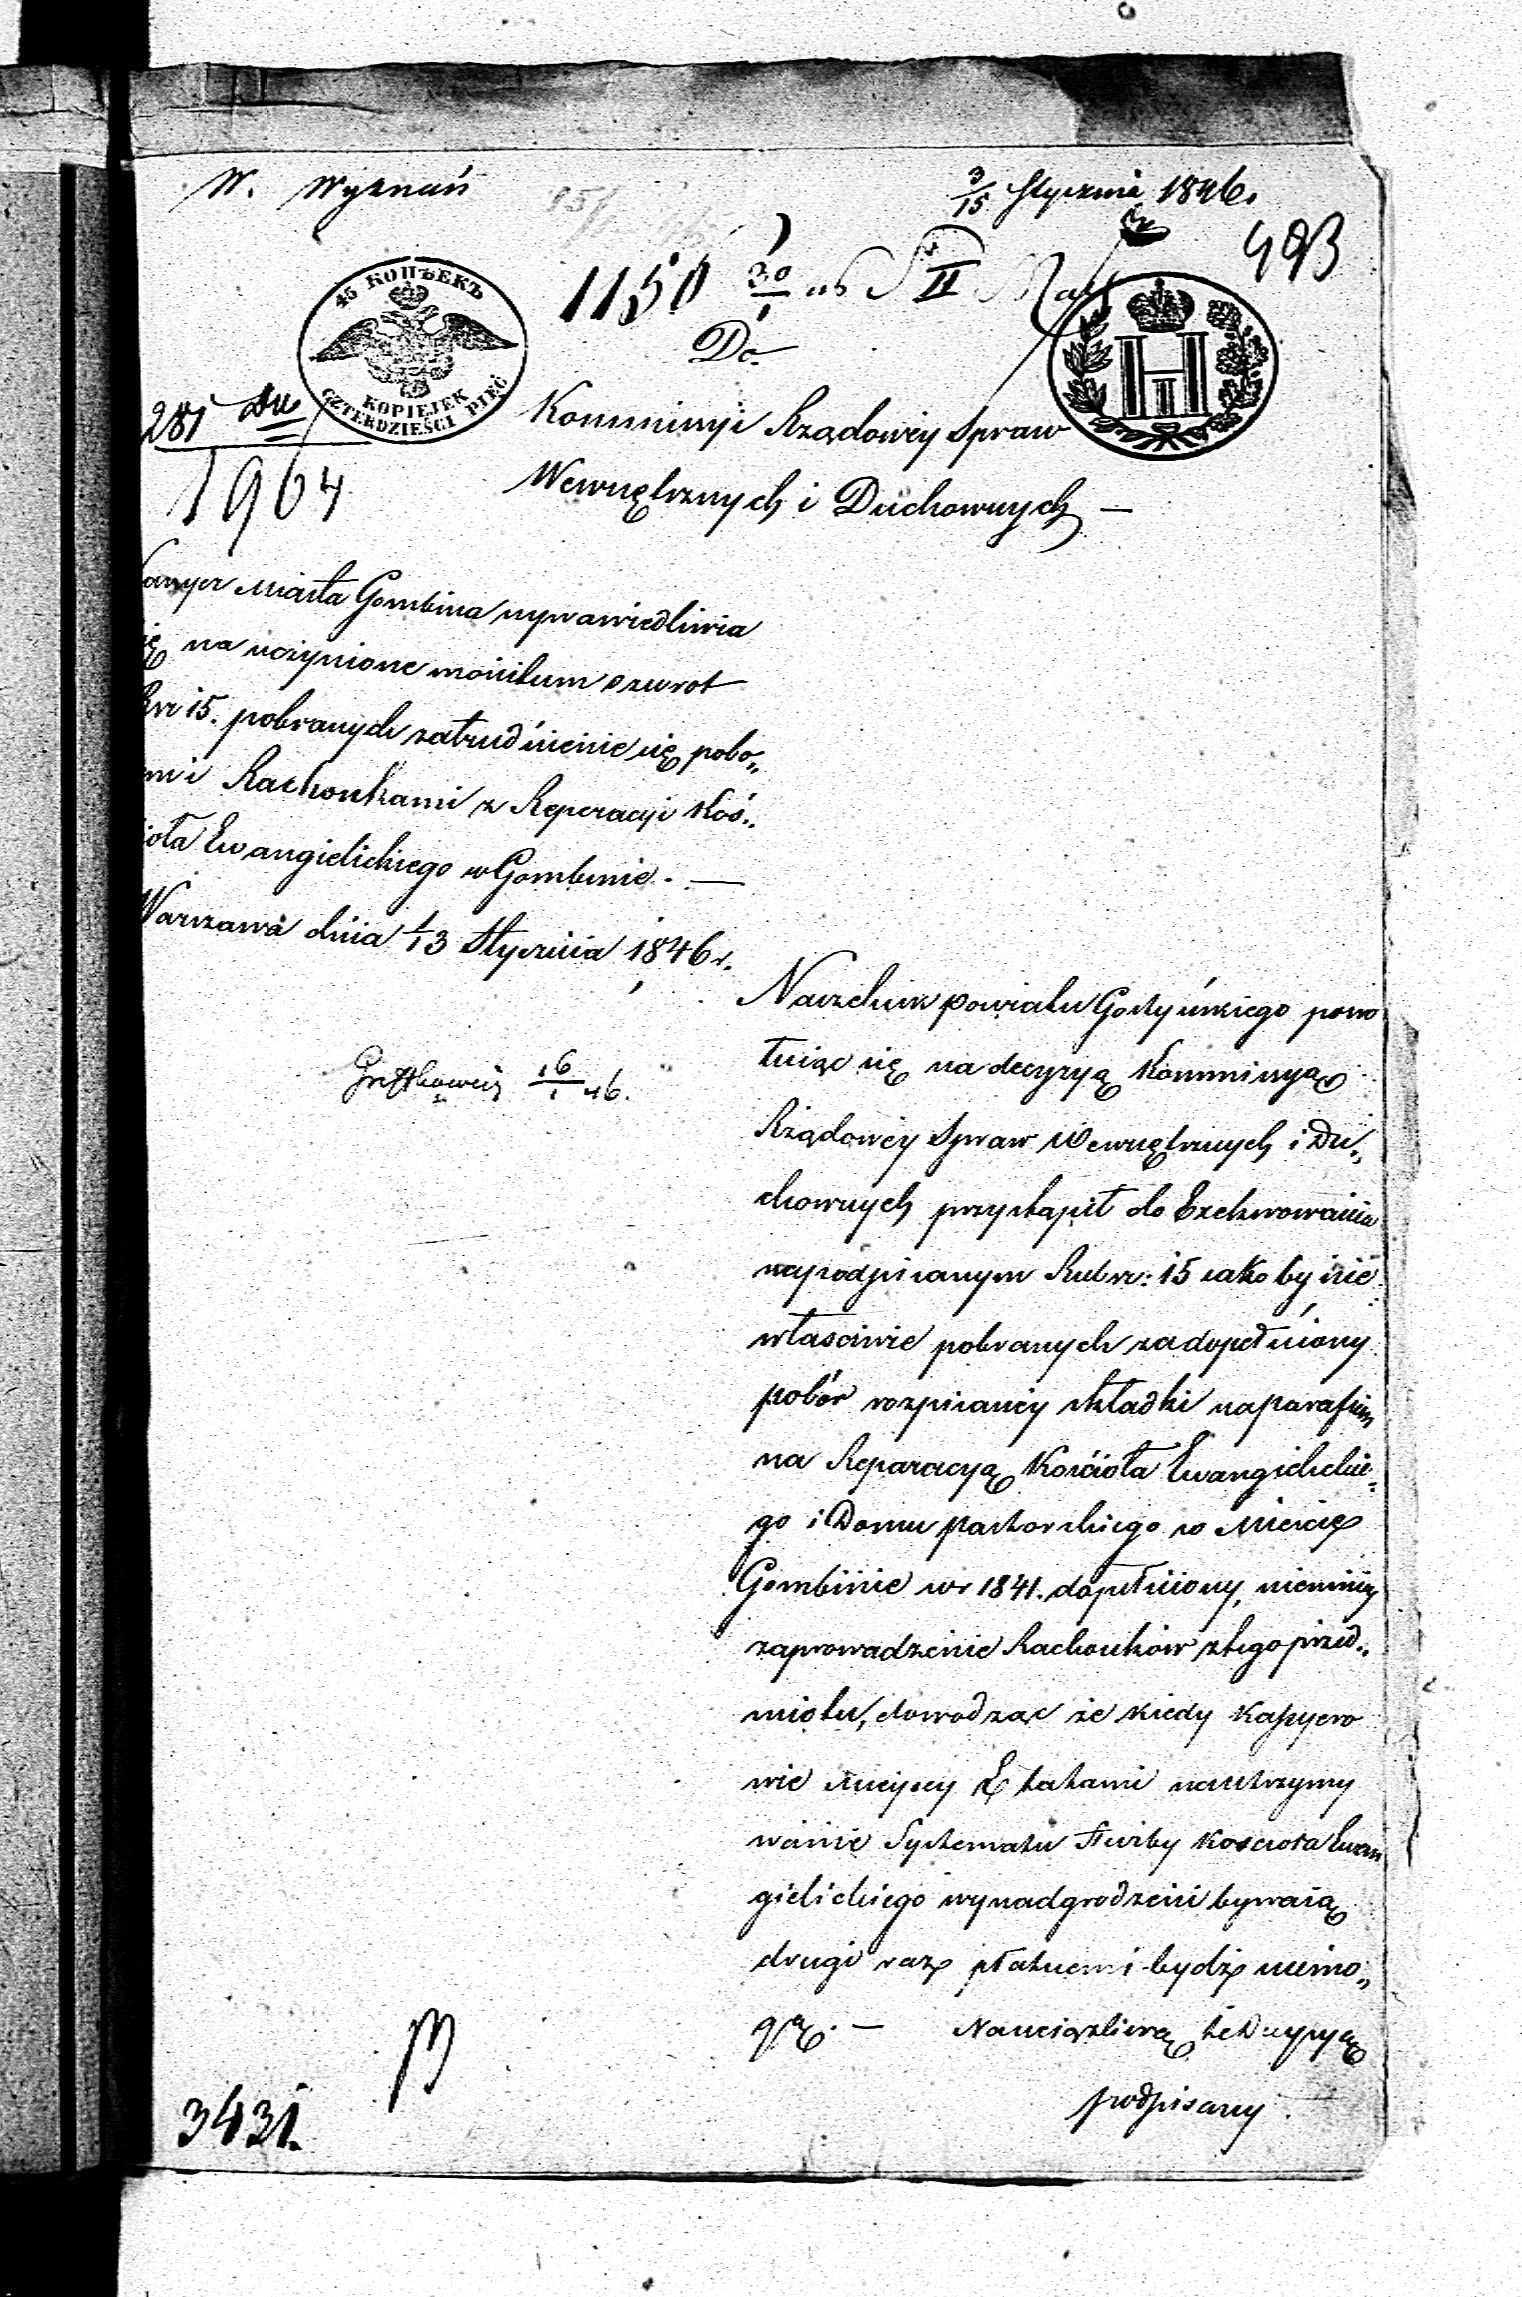 W. Wyznań
3/15 Stycznia 1846.
493
1150 30/1 46 II
45 КОПѢЕКЪ
KOPIEJEK
CZTERDZIEŚCI PIĘĆ
Do
281
1964
Kommissyi Rządowey Spraw
Wewnętrznych i Duchownych —
Miasta Gombina usprawiedliwia
się na uczynione monitum o zwrot
15. pobranych za trudnienie się pobo„
mi Rachonkami z Reperacyi Koś„
ioła Ewangielickiego w Gombinie. —
Warszawa dnia 1/13 Stycznia 1846 r.
16/1 46.
Naczelnik Powiatu Gostyńskiego powo
łuiąc się na decyzyą Kommissyą
Rządowéy Spraw Wewnętrznych i Du„
chownych przystąpił do Exekwowania
na podpisanym Rubsr: 15 iako by nie
własciwie pobranych za dopełniony
pobór rozpisanéy składki na parafium
na Reparacyą Kościoła Ewangielickie„
go i Domu pastorskiego w Mieście
Gombinie w r 1841. dopełniony, niemniéy
zaprowadzenie Rachonków z tego przed„
miotu, dowodząc że kiedy Kassyero
wie Mieyscy Etatami na utrzymy
wanie Systematu służby Kościoła Ewan
gielickiego wynadgrodzeni bywaią
drugi raz płatnemi bydź niemo„
gą. — Na uciążliwą tę Decyzyą
podpisany
3431.